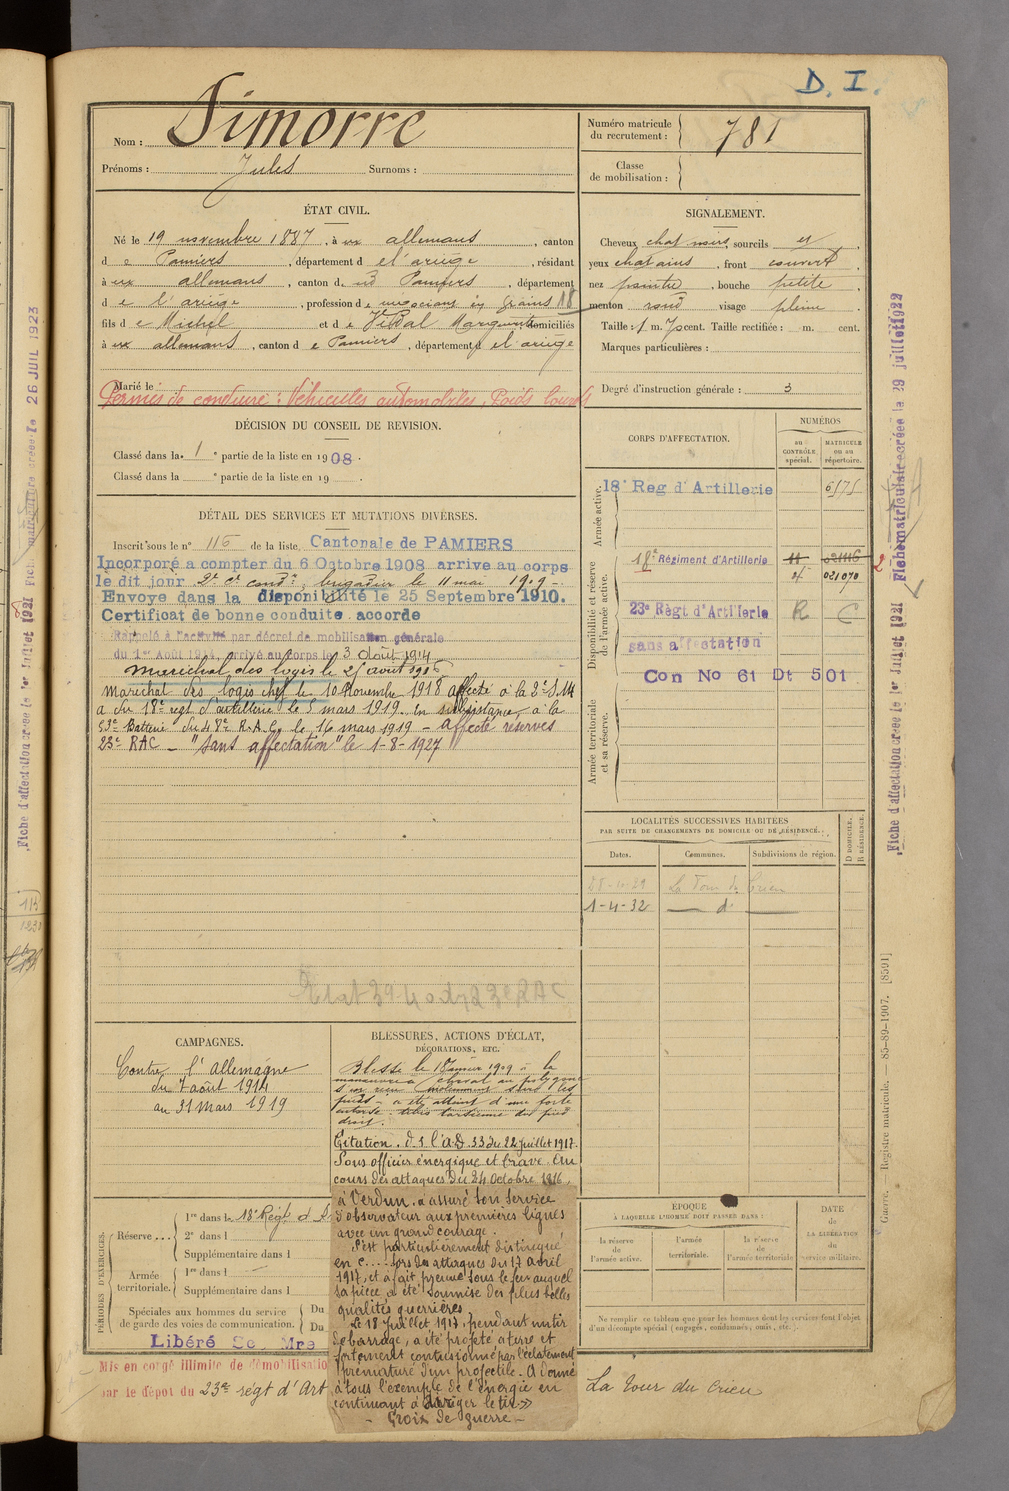 D. I.
Nom : Simorre
Prénoms : Jules Surnoms :
Numéro matricule du recrutement : 781
Classe de mobilisation :
ÉTAT CIVIL.
Né le 19 novembre 1887, à ux allemans, canton
d e Pamiers, département d e l'ariège, résidant
à ux allemans, canton d Pamiers, département
d e l'ariège, profession d e négociant en grains 18
fils d e Michel et d e Vidal Marguerite domiciliés
à ux allemans, canton d e Pamiers, département d e l'ariège
Marié le
Permis de conduire : Véhicules automobiles, Poids lourds
SIGNALEMENT.
Cheveux chat noirs, sourcils et
yeux chatains, front couvert
nez pointu, bouche petite
menton rond visage plein
Taille : 1 m. 70 cent. Taille rectifiée : m. cent.
Marques particulières :
Degré d'instruction générale : 3
DÉCISION DU CONSEIL DE REVISION.
Classé dans la 1e partie de la liste en 1908.
Classé dans la e partie de la liste en 19 .
DÉTAIL DES SERVICES ET MUTATIONS DIVERSES.
Inscrit sous le n° 116 de la liste Cantonale de PAMIERS
Incorporé a compter du 6 Octobre 1908 arrive au corps
le dit jour 2e cr condr brigadier le 11 mai 1909 -
Envoye dans la disponibilité le 25 Septembre 1910.
Certificat de bonne conduite accorde
Rappelé à l'activité par décret de mobilisation générale
du 1er Août 1914, arrivé au corps le 3 Août 1914
Maréchal des logis le 25 août 1916
Maréchal des logis chef le 10 Novembre 1918 affecté à la 3e S.M
a du 18e régt d'artillerie le 5 mars 1919. En subsistance à la
53e Batterie du 48e R.A.C. le 16 mars 1919 - affecté réserves
23e RAC - "Sans affectation" le 1-8-1927
CORPS D'AFFECTATION.
NUMÉROS
au CONTRÔLE spécial.
MATRICULE ou au répertoire.
Armée active.
18e Reg d'Artillerie 6575
Disponibilité et réserve de l'armée active.
18e Régiment d'Artillerie
021070
23e Règt d'Artillerie R C
sans affectation
Con No 61 Dt 501
Armée territoriale et sa réserve.
LOCALITÉS SUCCESSIVES HABITÉES
PAR SUITE DE CHANGEMENTS DE DOMICILE OU DE RÉSIDENCE.
Dates. Communes. Subdivisions de région. D DOMICILE. R RÉSIDENCE.
La Tour du Crieu
1-4-32 — d° —
CAMPAGNES.
Contre l'Allemagne
du 7 août 1914
au 31 Mars 1919
BLESSURES, ACTIONS D'ÉCLAT,
DÉCORATIONS, ETC.
Blessé le 18 janvier 1909 à la
manœuvre à cheval au polygone
pieds - a été atteint d'une forte
entorse tibio tarsienne du pied
droit.
Citation. O. à l'A.D. 33 du 22 juillet 1917.
Sous officier énergique et brave. Au
cours des attaques du 24 Octobre 1916
à Verdun, a assuré son service
d'observateur aux premières lignes
avec un grand courage.
S'est particulièrement distingué
en C.... lors des attaques du 17 avril
1917, et a fait preuve sous le feu auquel
sa pièce a été soumise des plus belles
qualités guerrières.
Le 18 Juillet 1917, pendant un tir
de barrage, a été projeté à terre et
fortement contusionné par l'éclatement
prématuré d'un projectile. A donné
à tous l'exemple de l'énergie en
continuant à diriger le tir »
- Croix de guerre -
PÉRIODES D'EXERCICES.
Réserve ... 1re dans le 18e Régt d'A
2e dans l
Supplémentaire dans l
Armée territoriale. 1re dans l
Supplémentaire dans l
Spéciales aux hommes du service de garde des voies de communication. Du
Du
Libéré Se Mre
Mis en congé illimité de démobilisation
par le dépot du 23e régt d'Art
ÉPOQUE
À LAQUELLE L'HOMME DOIT PASSER DANS :
la réserve de l'armée active.
l'armée territoriale.
la réserve de l'armée territoriale
DATE de LA LIBÉRATION du service militaire.
Ne remplir ce tableau que pour les hommes dont les services font l'objet
d'un décompte spécial (engagés, condamnés, omis, etc.).
La Tour du Crieu
Guerre. — Registre matricule. — 85-89-1907. [8591]
Fiche d'affectation créée le 1er Juillet 1921 Fiche matriculaire créée le 29 juillet 1922
Fiche d'affectation créée le 1er Juillet 1921 Fich matriculaire créée le 26 JUIL 1923